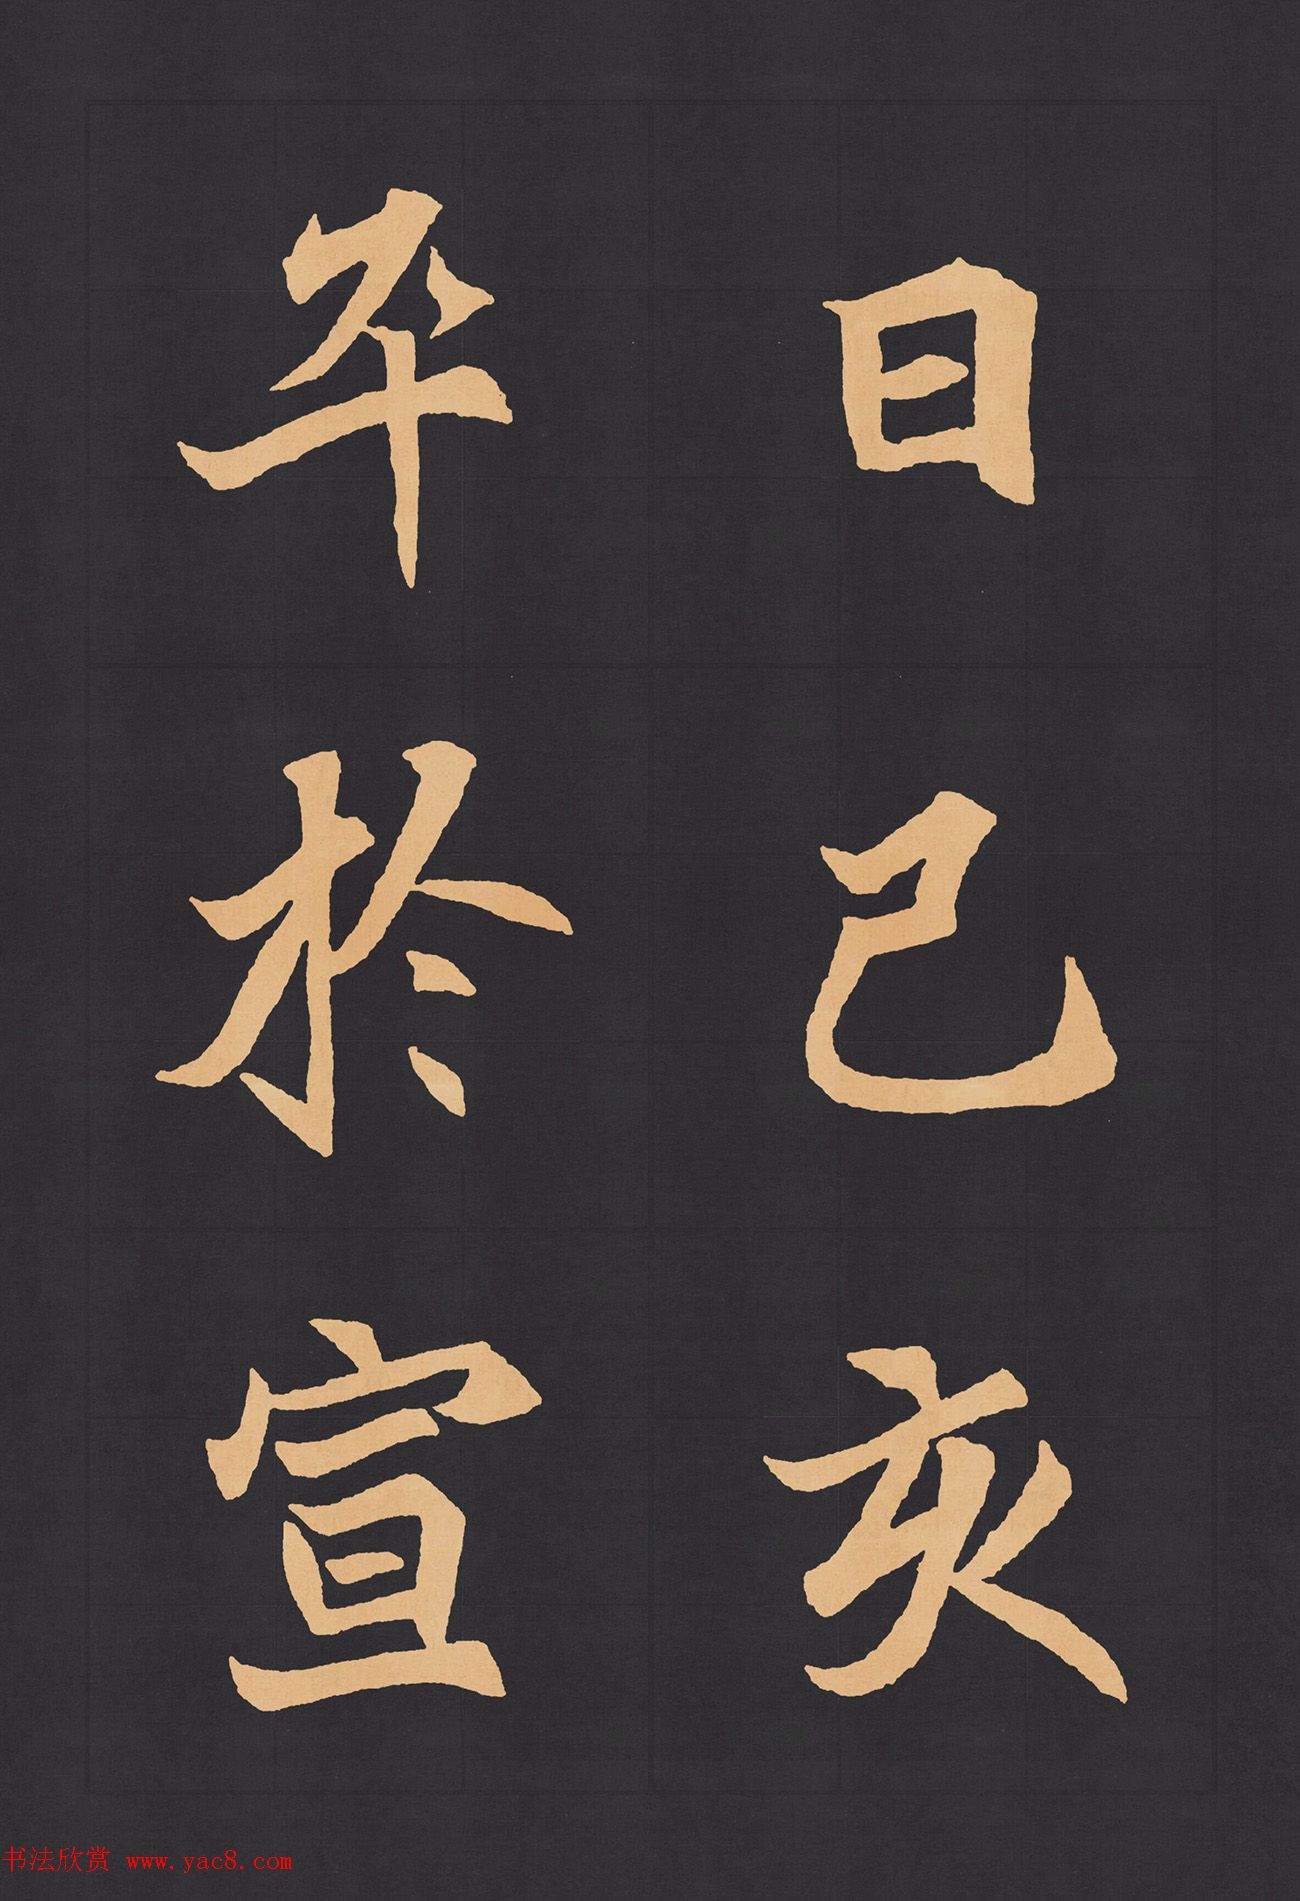 日己亥
卒於宣
书法欣赏 www.yac8.com